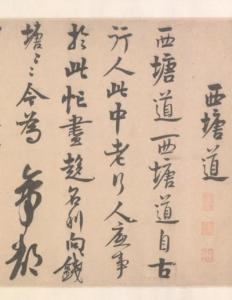 西塘道
西塘道西塘道自古
行人此中老行人底事
於此忙盡趨名利向錢
塘〻今為帝都